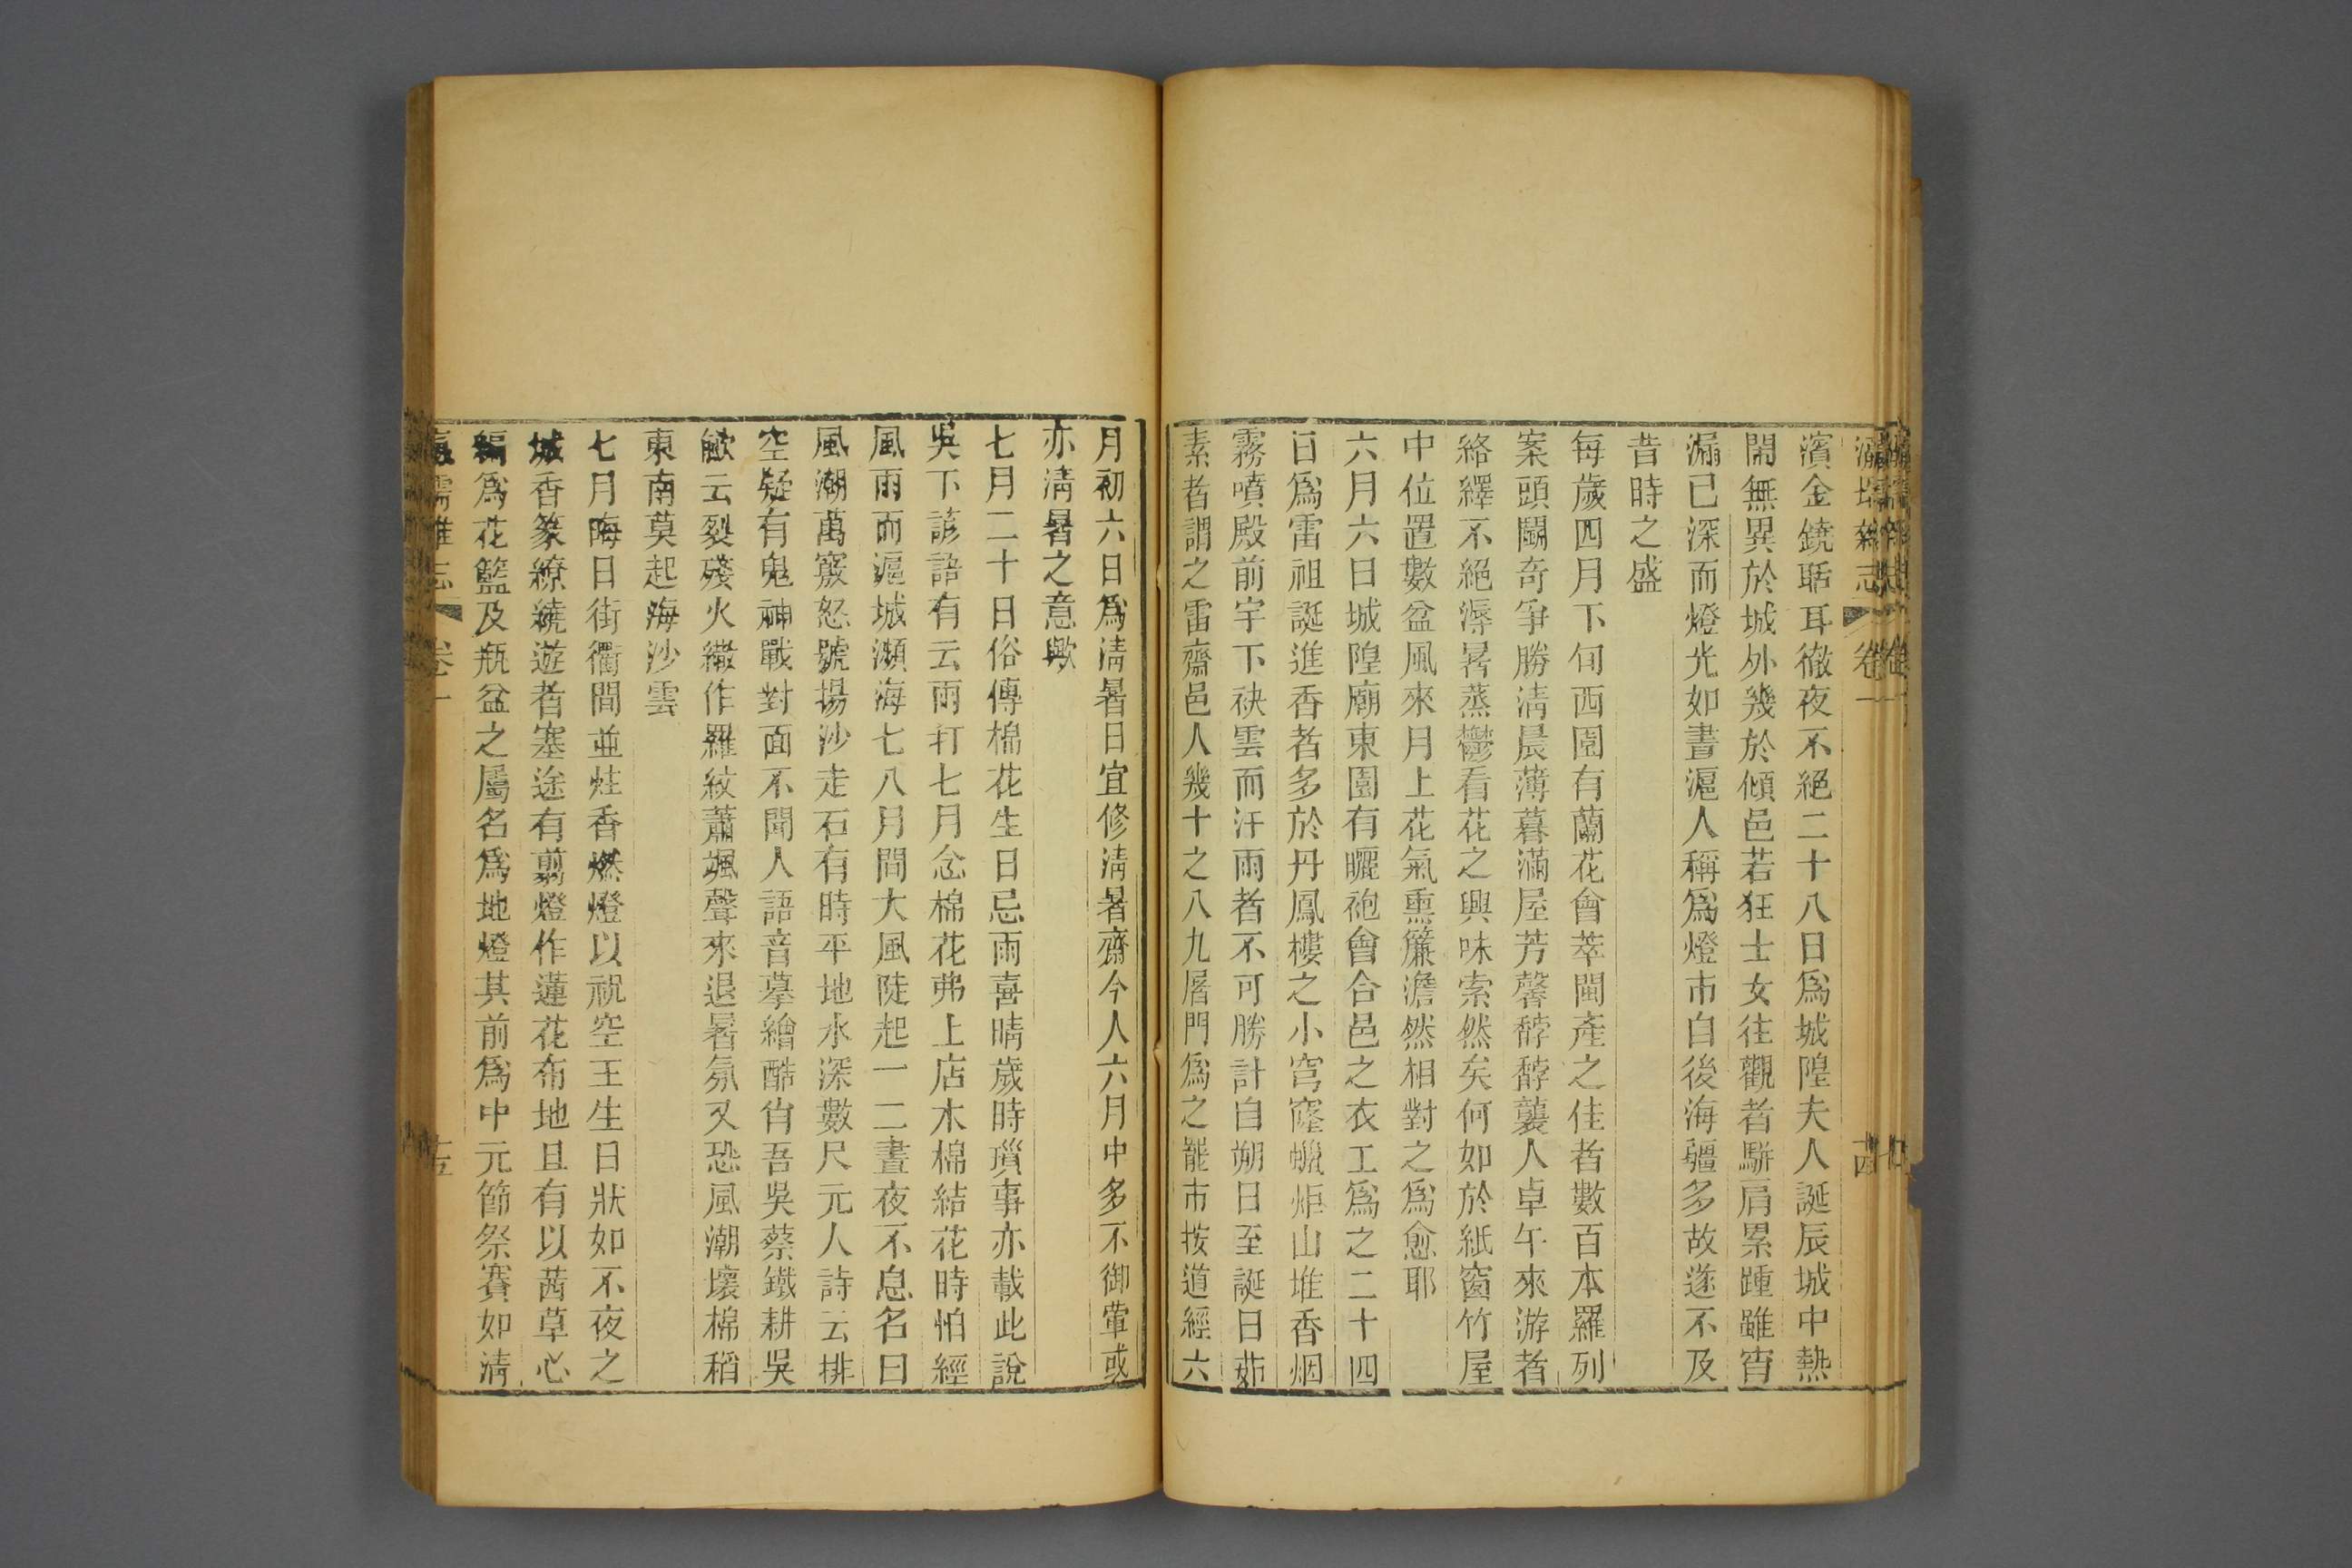 瀛壖雜志 卷一 十四
濱金鐃聒耳徹夜不絕二十八日爲城隍夫人誕辰城中熱
鬧無異於城外幾於傾邑若狂士女往觀者駢肩累踵雖宵
漏已深而燈光如晝滬人稱爲燈市自後海疆多故遂不及
昔時之盛
每歲四月下旬西園有蘭花會萃閩產之佳者數百本羅列
案頭鬭奇爭勝清晨薄暮滿屋芳馨馞馞襲人卓午來游者
絡繹不絕溽暑蒸鬱看花之興味索然矣何如於紙窗竹屋
中位置數盆風來月上花氣熏簾澹然相對之爲愈耶
六月六日城隍廟東園有曬袍會合邑之衣工爲之二十四
日爲雷祖誕進香者多於丹鳳樓之小穹窿蠟炬山堆香烟
霧噴殿前宇下袂雲而汗雨者不可勝計自朔日至誕日茹
素者謂之雷齋邑人幾十之八九屠門爲之罷市按道經六
月初六日爲清暑日宜修清暑齋今人六月中多不御葷或
亦清暑之意歟
七月二十日俗傳棉花生日忌雨喜晴歲時瑣事亦載此說
吳下諺語有云雨打七月念棉花弗上店木棉結花時怕經
風雨而滬城瀕海七八月間大風陡起一二晝夜不息名曰
風潮萬竅怒號揚沙走石有時平地水深數尺元人詩云排
空疑有鬼神戰對面不聞人語音摹繪酷肖吾吳蔡鐵耕吳
歈云裂殘火繖作羅紋蕭颯聲來退暑氛又恐風潮壞棉稻
東南莫起海沙雲
七月晦日街衢間並炷香燃燈以祝空王生日狀如不夜之
城香篆繚繞遊者塞途有剪燈作蓮花布地且有以茜草心
編爲花籃及瓶盆之屬名爲地燈其前爲中元節祭賽如清
瀛壖雜志 卷一 十五